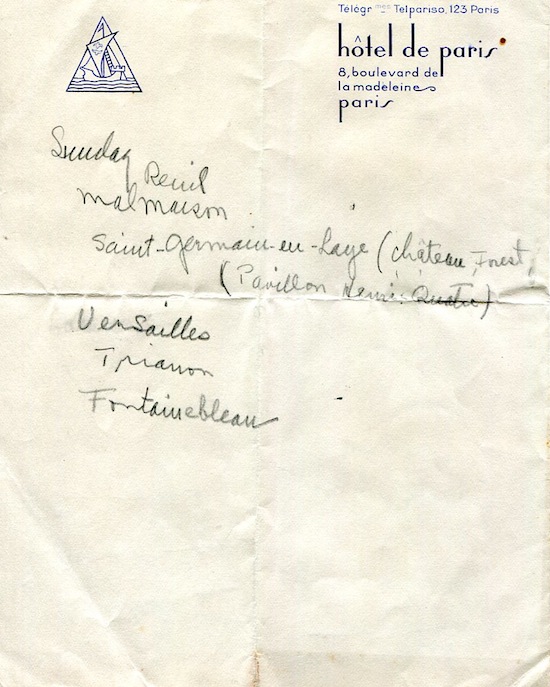 Télégr mes Telpariso, 123 Paris
hôtel de paris
8, boulevard de
la madeleine
paris
Sunday
Reuil
Malmaison
Saint-Germain-en-Laye (Château, Forest,
(Pavillon Henri Quatre)
Versailles
Trianon
Fontainebleau